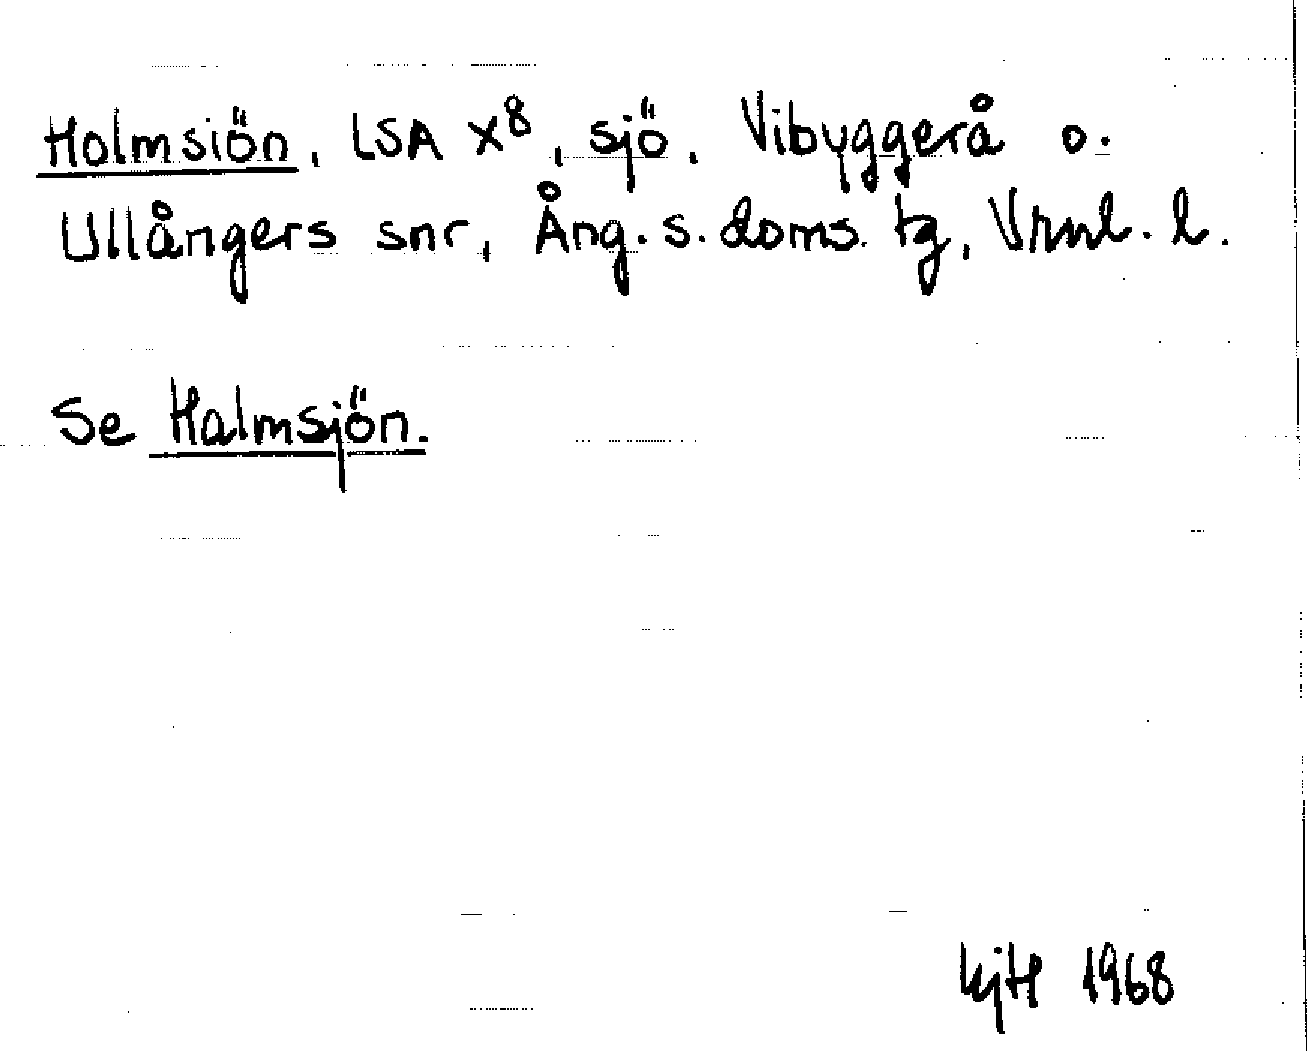 Holmsiön, LSA X8, sjö, Vibyggerå o.
Ullångers snr, Ång. s. doms. tg, Vrnl. l.
Se Halmsjön.
1968